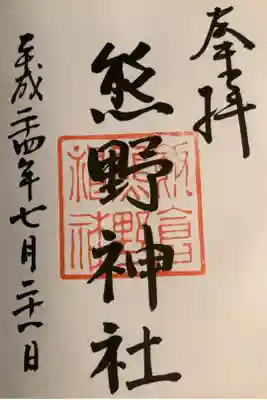 奉拝
熊野神社
平成二十四年七月二十八日
飯倉
熊野
神社